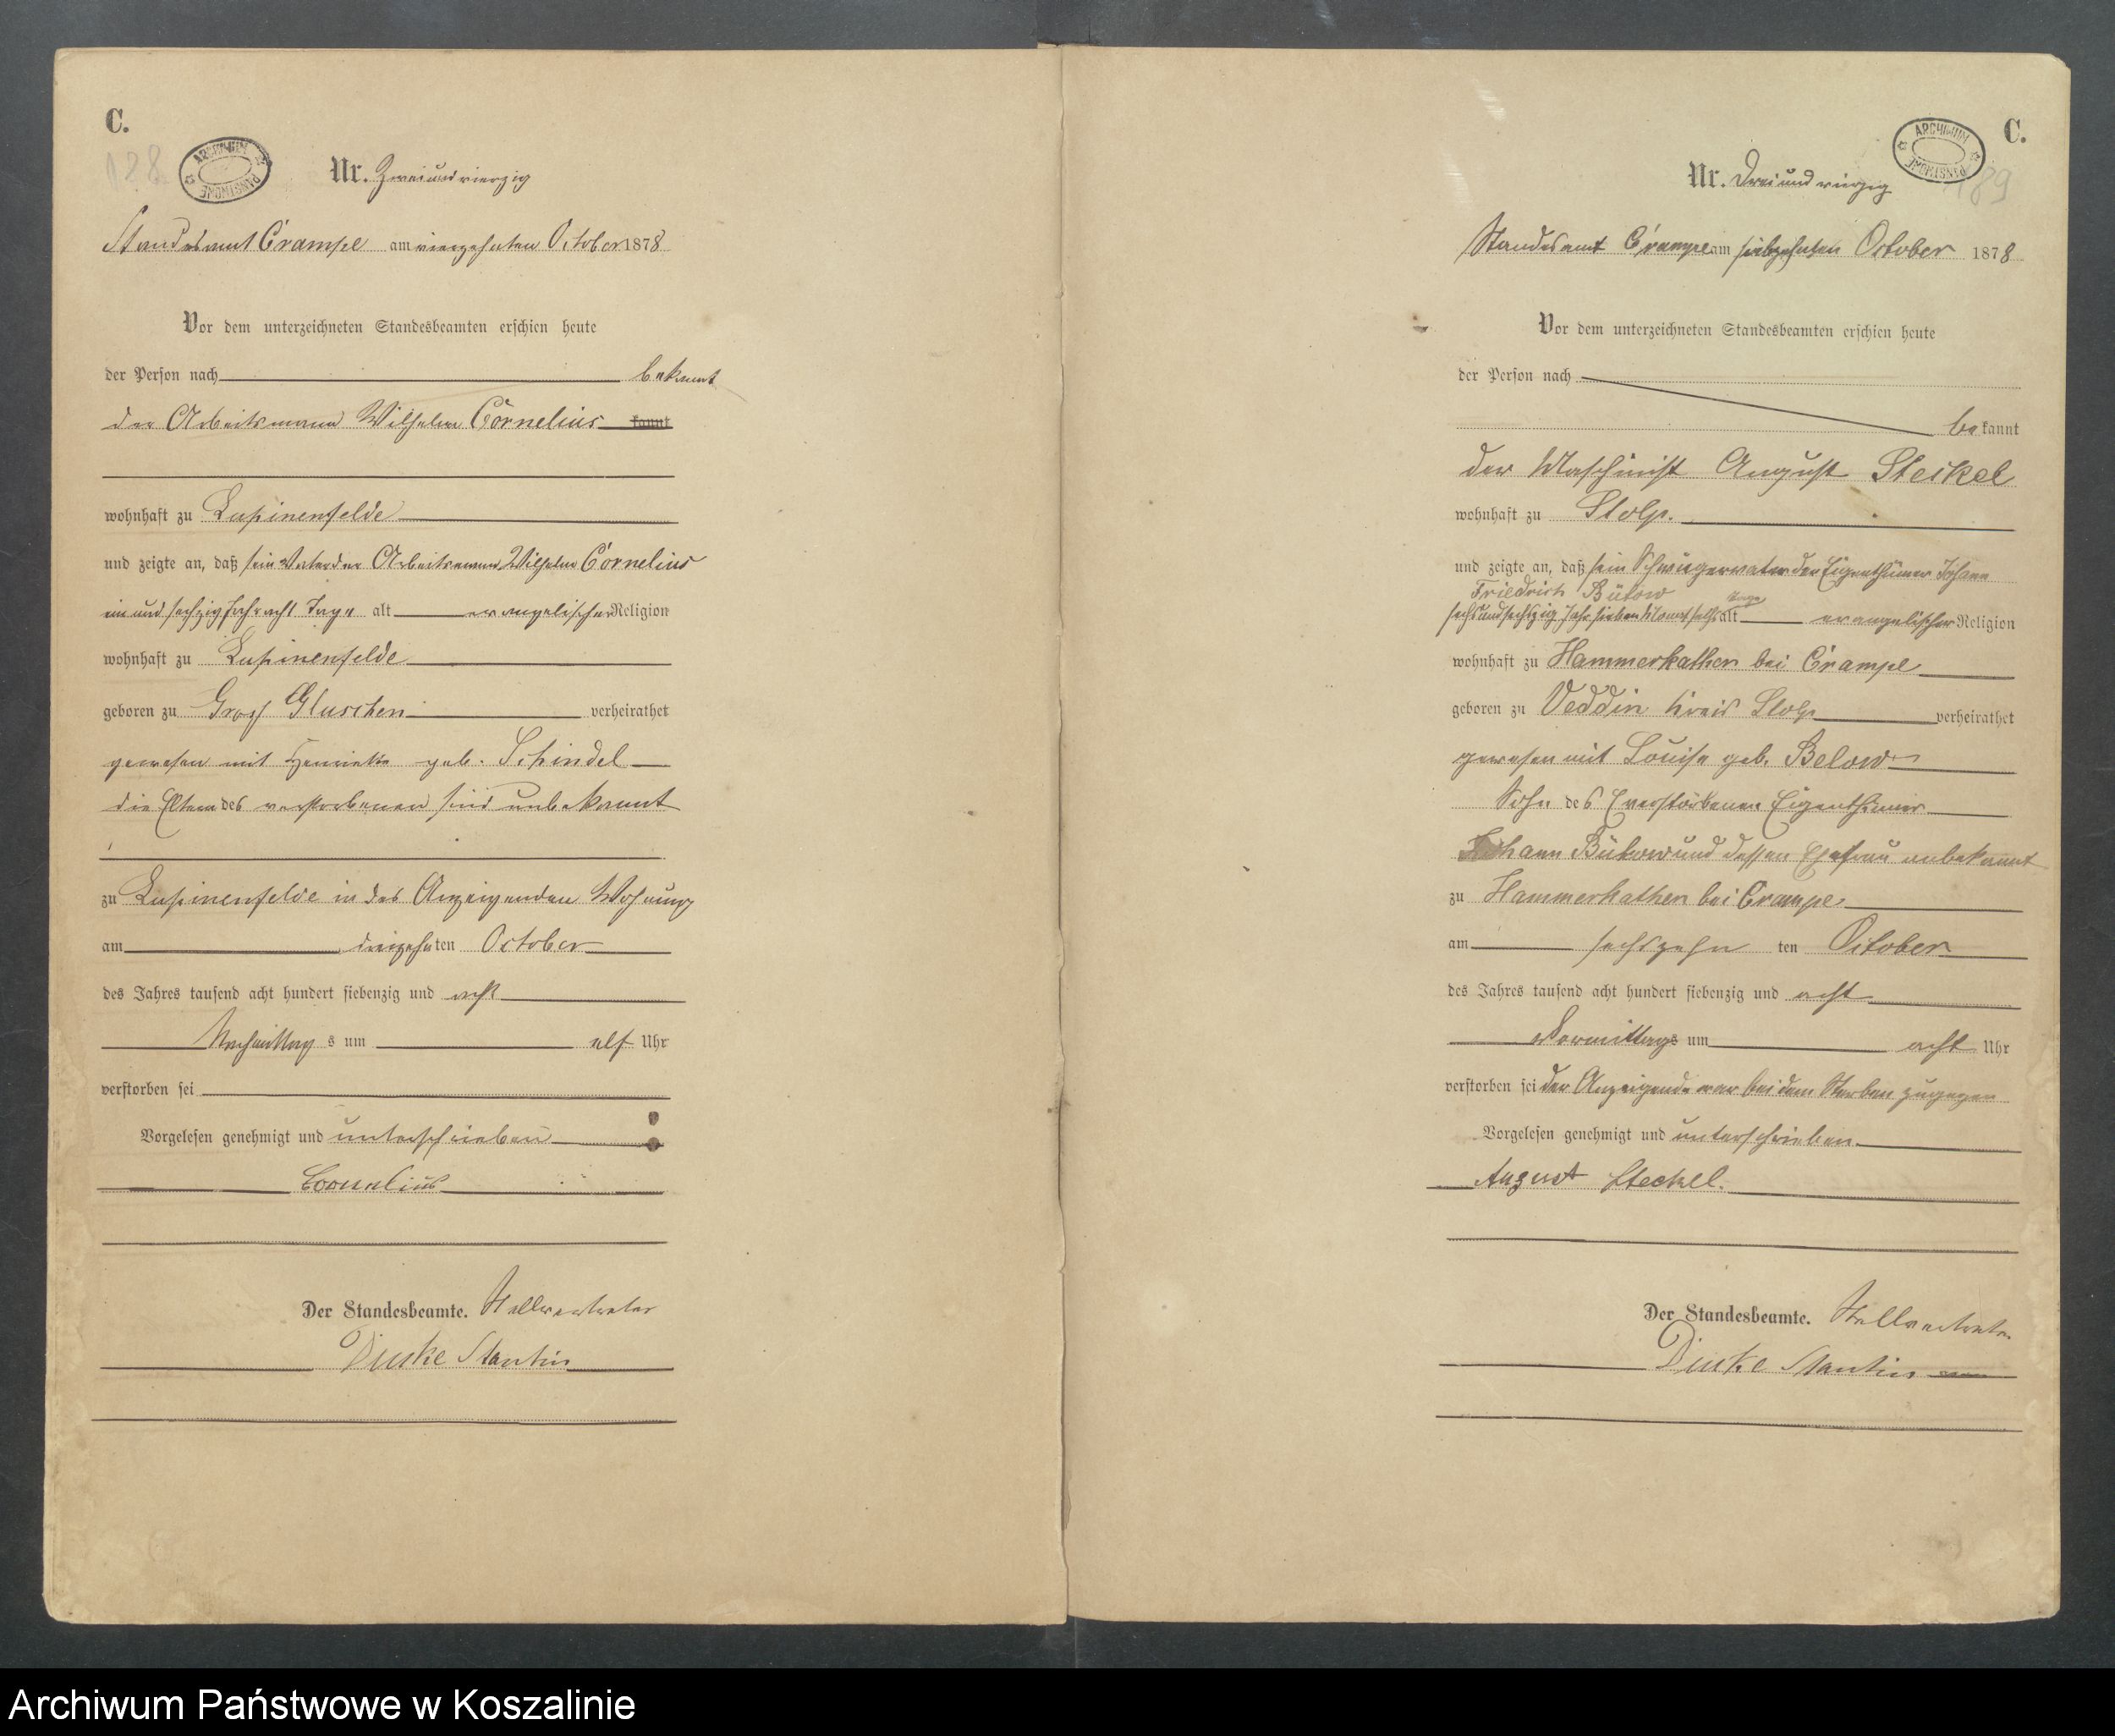 C.
128
ARCHIWUM PAŃSTWOWE
Nr. Zweiundvierzig
Standesamt Crampe am vierzehnten October 1878
Vor dem unterzeichneten Standesbeamten erschien heute
der Person nach bekannt
der Arbeitsmann Wilhelm Cornelius kannt
wohnhaft zu Lupinenfelde
und zeigte an, daß sein Vater der Arbeitsmann Wilhelm Cornelius
ein und sechzig Jahr acht Tage alt evangelischer Religion
wohnhaft zu Lupinenfelde
geboren zu Gross Gluschen verheirathet
gewesen mit Henriette geb. Schindel
die Eltern des verstorbenen sind unbekannt
zu Lupinenfelde in des Anzeigenden Wohnung
am dreizehnten October
des Jahres tausend acht hundert siebenzig und acht
Nachmittag s um elf Uhr
verstorben sei
Vorgelesen genehmigt und unterschrieben
Cornelius
Der Standesbeamte. Stellvertreter
Dinske Stantin
C.
189
ARCHIWUM PAŃSTWOWE
Nr. Dreiundvierzig
Standesamt Crampe am siebzehnten October 1878
Vor dem unterzeichneten Standesbeamten erschien heute
der Person nach
bekannt
der Maschinist August Steckel
wohnhaft zu Stolp.
und zeigte an, daß sein Schwiegervater der Eigenthümer Johann
Friedrich Bütow
sechsundsechszig Jahr sieben Monat sechs Tage alt evangelischer Religion
wohnhaft zu Hammerkathen bei Crampe
geboren zu Veddin Kreis Stolp verheirathet
gewesen mit Louise geb. Below
Sohn des verstorbenen Eigenthümer
Johann Bütow und dessen Ehefrau unbekannt
zu Hammerkathen bei Crampe
am sechszehn ten October
des Jahres tausend acht hundert siebenzig und acht
Vormittags um acht Uhr
verstorben sei der Anzeigende war bei dem Sterben zugegen
Vorgelesen genehmigt und unterschrieben
August Steckel.
Der Standesbeamte. Stellvertreter
Dinske Stantin
Archiwum Państwowe w Koszalinie